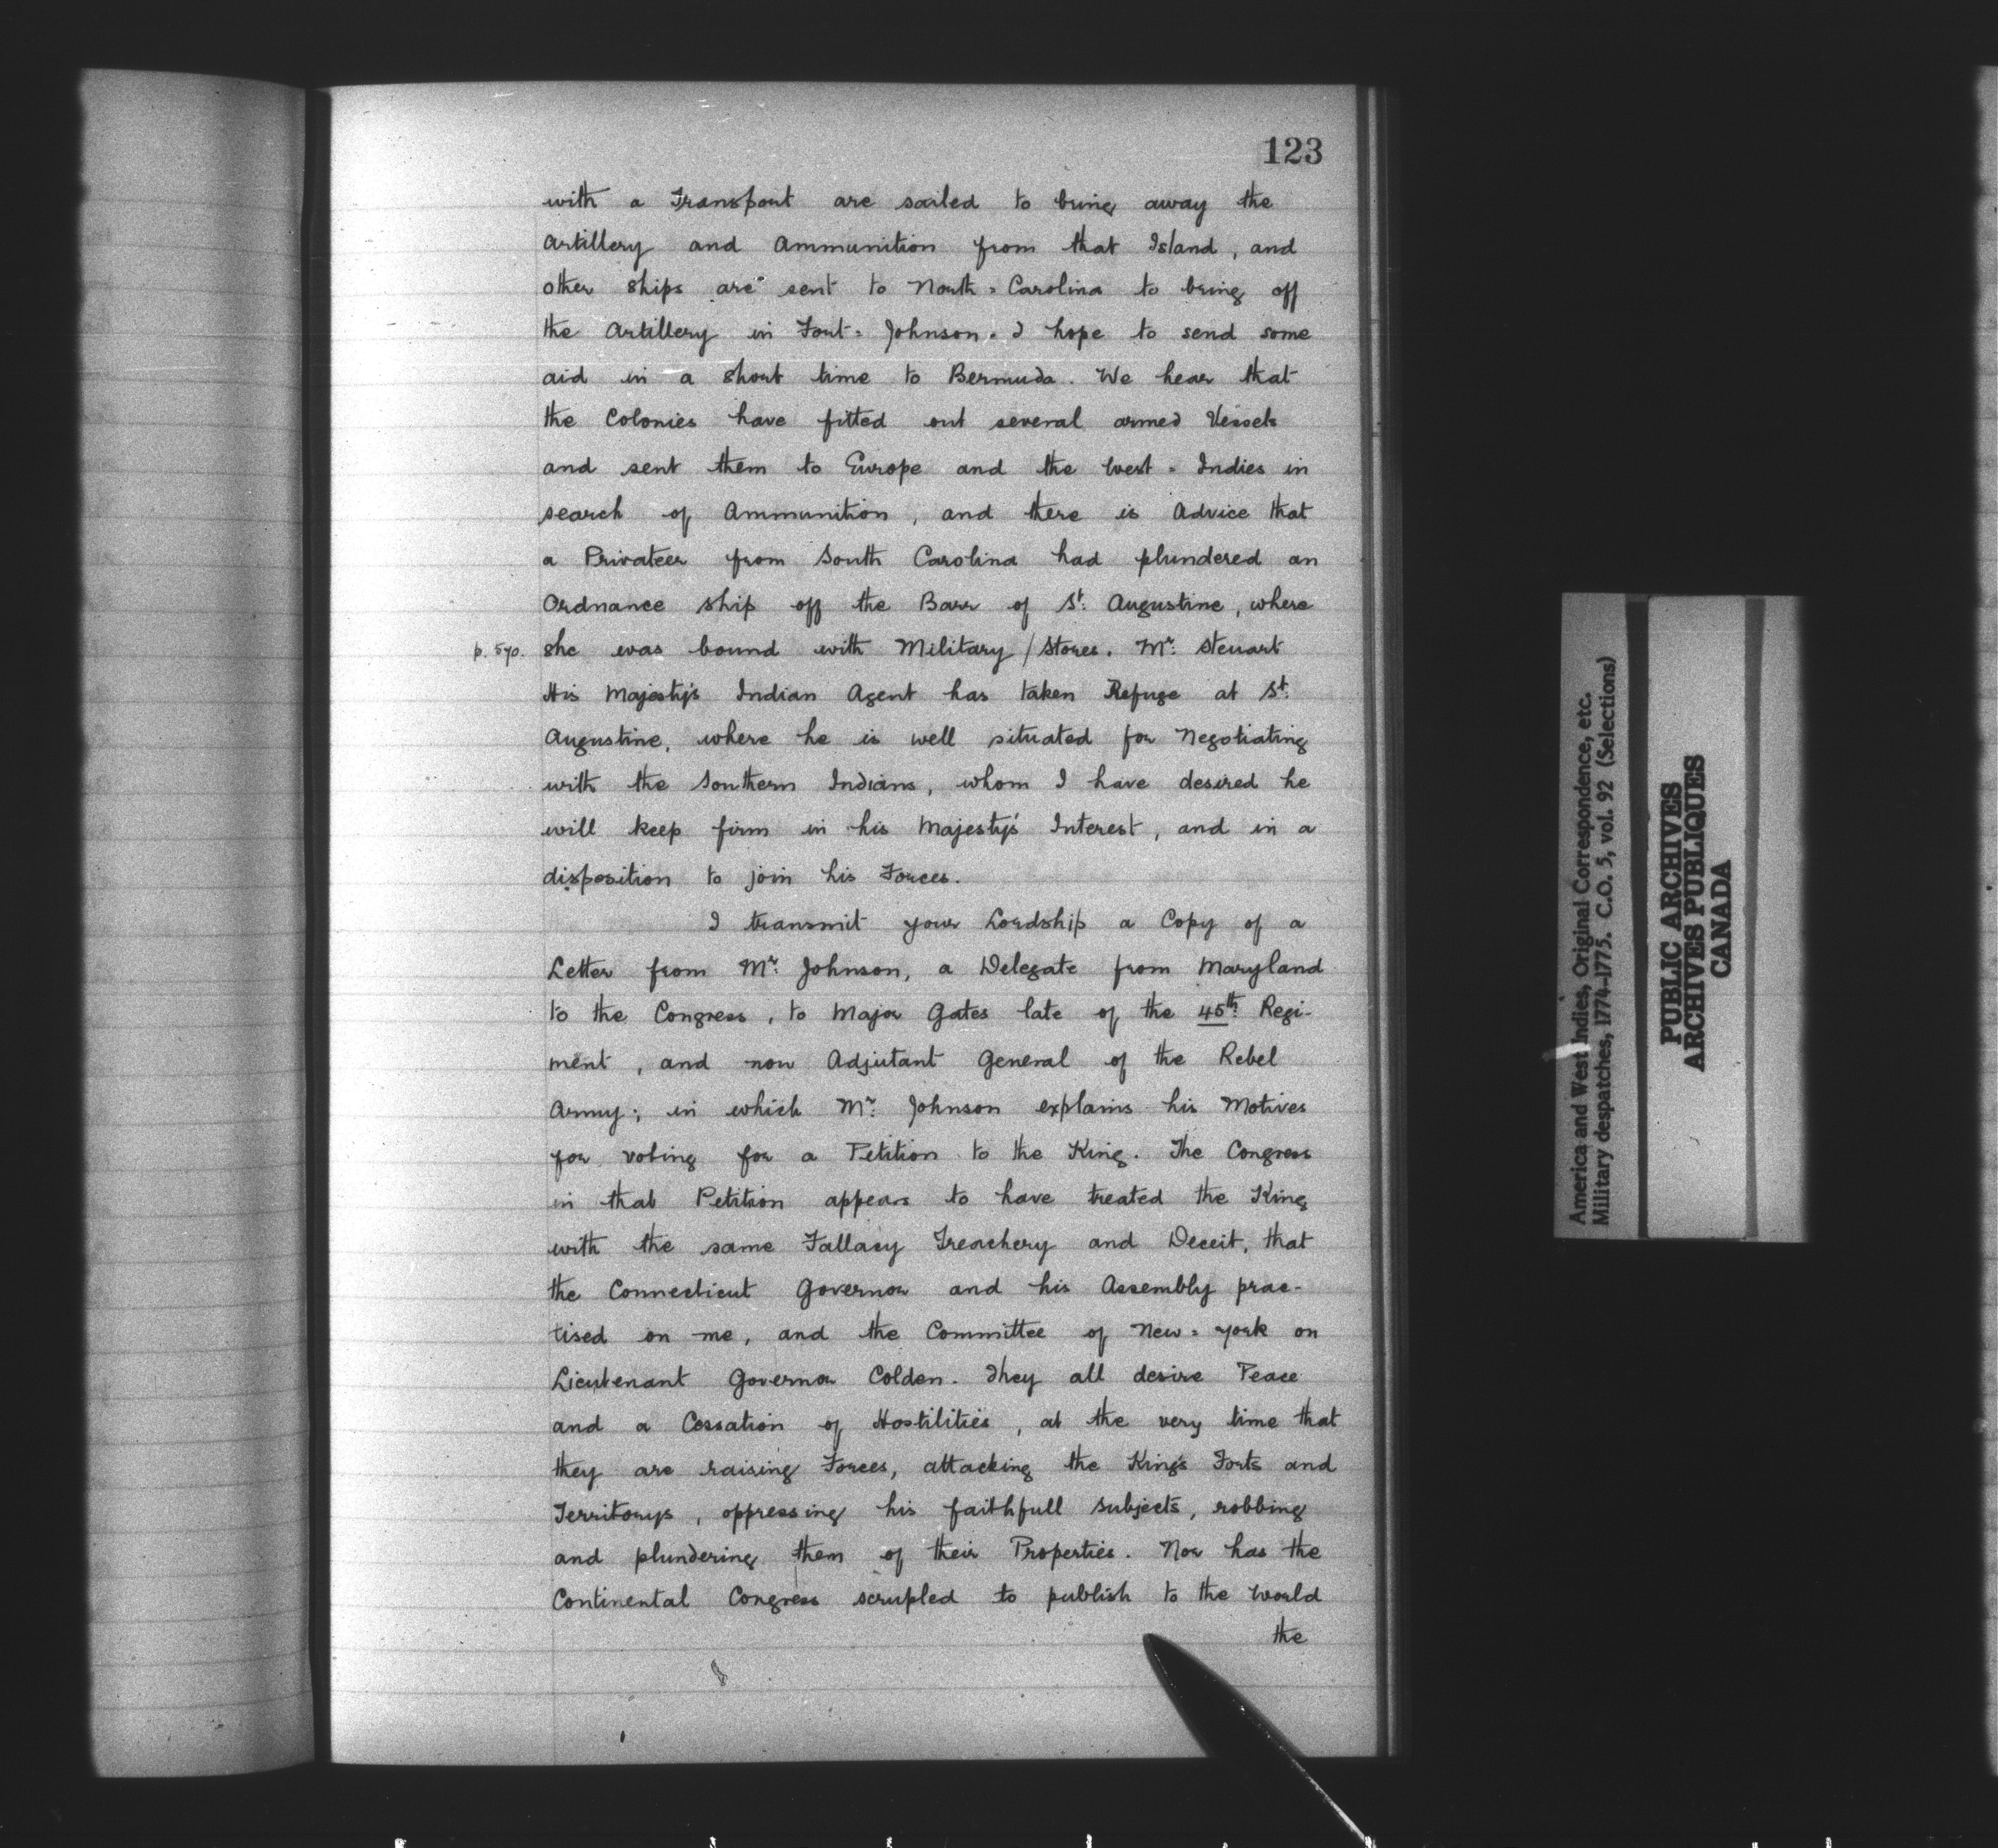 123
with a Transport are sailed to bring away the
Artillery and Ammunition from that Island, and
other Ships are sent to North = Carolina to bring off
the Artillery in Fort = Johnson. I hope to send some
aid in a short time to Bermuda. We hear that
the Colonies have fitted out several armed Vessels
and sent them to Europe and the West = Indies in
search of Ammunition, and there is Advice that
a Privateer from South Carolina had plundered an
Ordnance Ship off the Barr of St. Augustine, where
p. 570. she was bound with Military / Stores. Mr. Steuart
His Majesty's Indian Agent has taken Refuge at St.
Augustine, where he is well situated for Negotiating
with the Southern Indians, whom I have desired he
will keep firm in his Majesty's Interest, and in a
disposition to join his Forces.
I transmit your Lordship a Copy of a
Letter from Mr. Johnson, a Delegate from Maryland
to the Congress, to Major Gates late of the 45th. Regi-
ment, and now Adjutant General of the Rebel
Army; in which Mr. Johnson explains his Motives
for voting for a Petition to the King. The Congress
in that Petition appears to have treated the King
with the same Fallacy Treachery and Deceit, that
the Connecticut Governor and his Assembly prac-
tised on me, and the Committee of New = York on
Lieutenant Governor Colden. They all desire Peace
and a Cessation of Hostilities, at the very time that
they are raising Forces, attacking the King's Forts and
Territorys, oppressing his faithfull Subjects, robbing
and plundering them of their Properties. Nor has the
Continental Congress scrupled to publish to the World
the
America and West Indies, Original Correspondence, etc.
Military despatches, 1774-1775. C.O. 5, vol. 92 (Selections)
PUBLIC ARCHIVES
ARCHIVES PUBLIQUES
CANADA